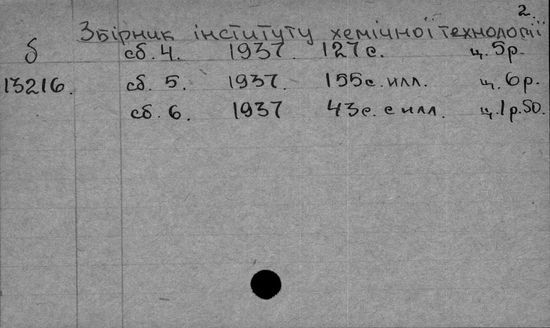 2.
Збірник інституту хемічної технології
б сб. 4. 1937. 127с. ц. 5р.
13216. сб. 5. 1937. 155с. илл. ц. 6р.
сб. 6. 1937 43с. с илл. ц. 1р. 50.